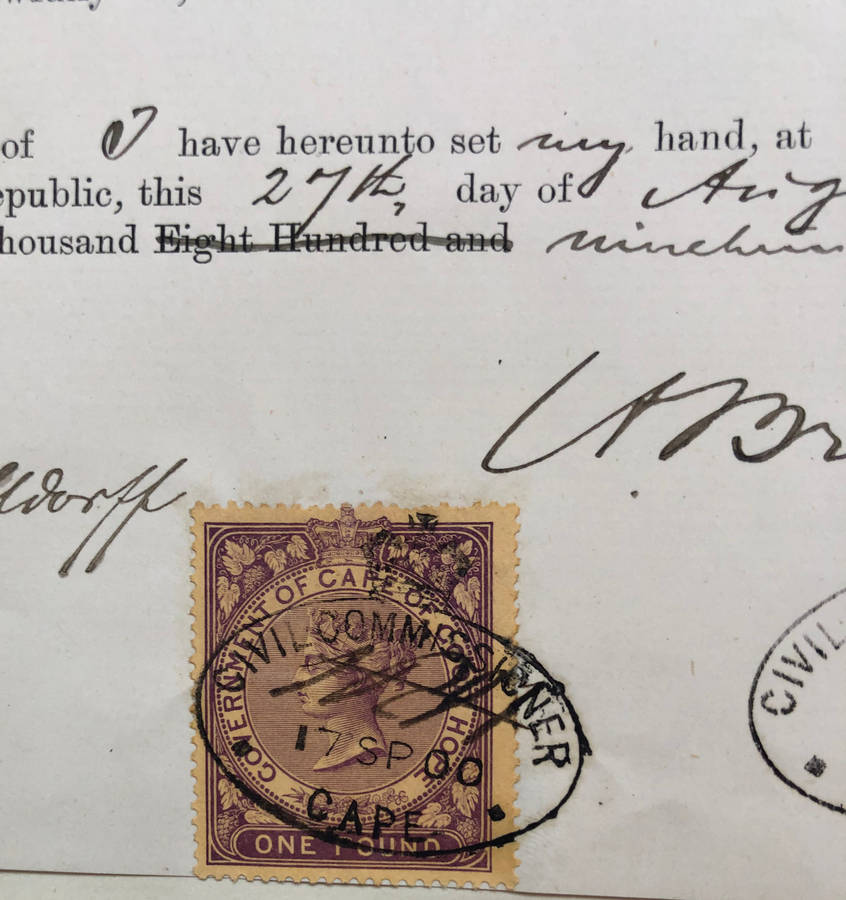 of I have hereunto set my hand, at
epublic, this 27th, day of Aug
housand Eight Hundred and ninehun
ABr
ldorff
GOVERNMENT OF CAPE OF GOOD HOPE
CIVIL COMMISSIONER
17 SP 00
CAPE
ONE POUND
CIVIL